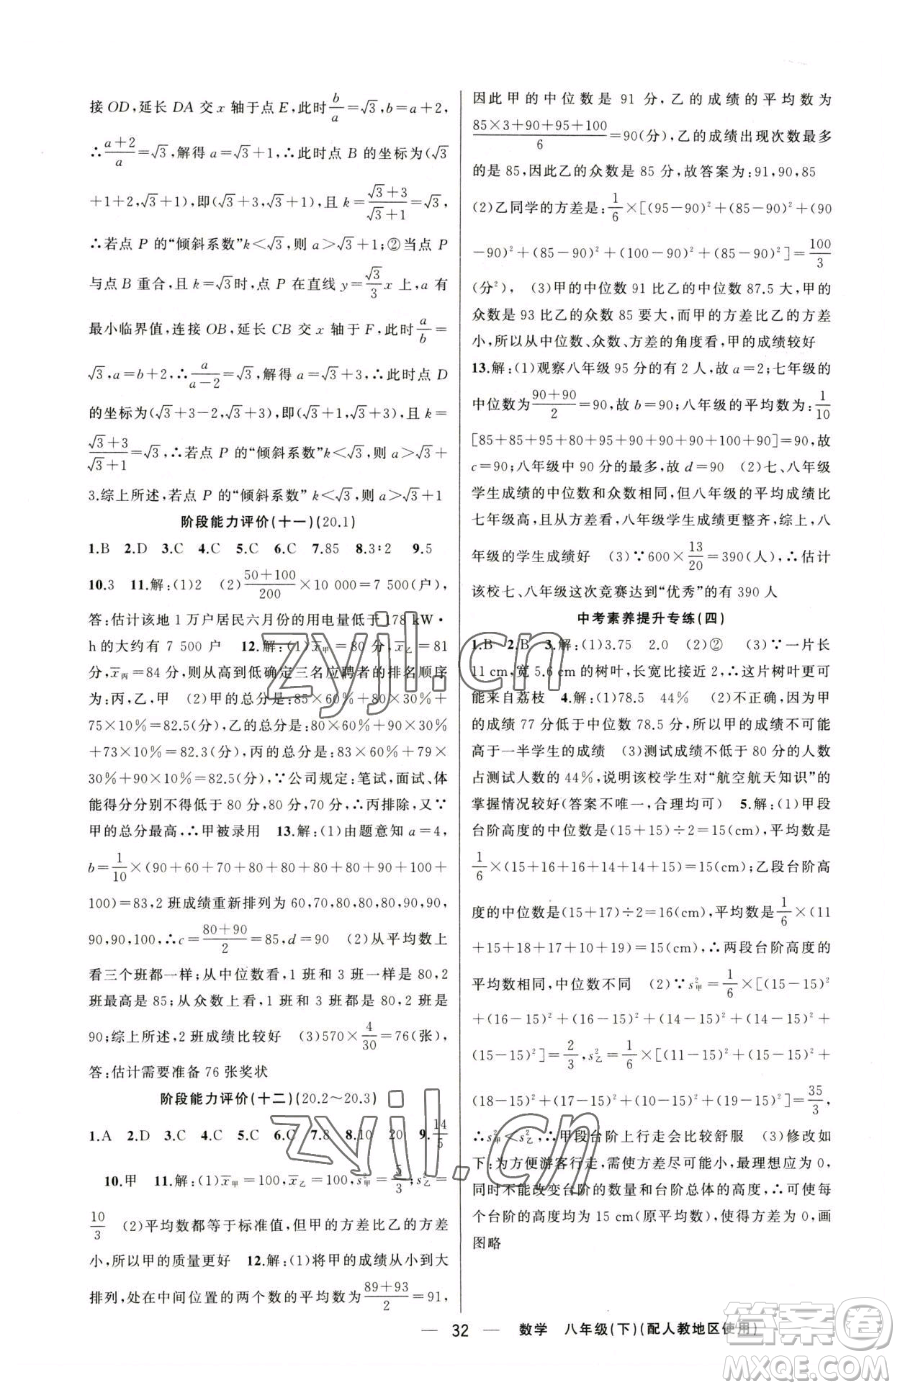 接OD,延长DA交x轴于点E,此时b/a=√3,b=a+2,
∴(a+2)/a=√3,解得a=√3+1,∴此时点B的坐标为(√3
+1+2,√3+1),即(√3+3,√3+1),且k=(√3+3)/(√3+1)=√3,
∴若点P的“倾斜系数”k<√3,则a>√3+1;②当点P
与点B重合,且k=√3时,点P在直线y=√3/3 x上,a有
最小临界值,连接OB,延长CB交x轴于F,此时a/b=
√3,a=b+2,∴a/(a-2)=√3,解得a=√3+3,∴此时点D
的坐标为(√3+3-2,√3+3),即(√3+1,√3+3),k=
(√3+3)/(√3+1)=√3,∴若点P的“倾斜系数”k<√3,则a<√3+
3.综上所述,若点P的“倾斜系数”k<√3,则a>√3+1
阶段能力评价(十一)(20.1)
1.B 2.D 3.C 4.C 5.C 6.C 7.85 8.3∶2 9.5
10.3 11.解:(1)2 (2)(50+100)/200×10 000=7 500(户),
答:估计该地1万户居民六月份的用电量低于178 kW·
h的大约有7 500户 12.解:(1)x̄甲=80分,x̄乙=81
分,x̄丙=81分,∴从高到低确定三名应聘者的排名顺序
为:丙,乙,甲 (2)甲的总分是:85×60%+80×30%+
75×10%=82.5(分),乙的总分是:80×60%+90×30%
+73×10%=82.3(分),丙的总分是:83×60%+79×
30%+81×10%=81.6(分),∵公司规定:笔试,面试、体
能得分分别不得低于80分,80分,70分,∴丙排除,又∵
甲的总分最高,∴甲被录用 13.解:(1)由题意知a=4,
b=1/10×(90+60+70+80+80+80+80+90+100+
100)=83,2班成绩重新排列为60,70,80,80,80,90,90,
90,90,100,∴c=(80+90)/2=85,d=90 (2)从平均数上
看三个班都一样;从中位数看,1班和3班一样是80,2
班最高是85;从众数上看,1班和3班都是80,2班是
90;综上所述,2班成绩比较好 (3)570×4/30=76(张),
答:估计需要准备76张奖状
阶段能力评价(十二)(20.2~20.3)
1.A 2.D 3.C 4.C 5.C 6.C 7.8 8.10 20 9.14/5
10.甲 11.解:(1)x̄甲=100,x̄乙=100,s²甲=5/3,s²乙=
10/3 (2)平均数都等于标准值,但甲的方差比乙的方差
小,所以甲的质量更好 12.解:(1)将甲的成绩从小到大
排列,处在中间位置的两个数的平均数为(89+93)/2=91,
因此甲的中位数是91分,乙的成绩的平均数为
(85×3+90+95+100)/6=90(分),乙的成绩出现次数最多
的是85,因此乙的众数是85分,故答案为:91,90,85
(2)乙同学的方差是:1/6×[(95-90)²+(85-90)²+(90
-90)²+(85-90)²+(100-90)²+(85-90)²]=100/3
(分²), (3)甲的中位数91比乙的中位数87.5大,甲的
众数是93比乙的众数85要大,而甲的方差比乙的方差
小,所以从中位数、众数、方差的角度看,甲的成绩较好
13.解:(1)观察八年级95分的有2人,故a=2;七年级的
中位数为(90+90)/2=90,故b=90;八年级的平均数为:1/10
[85+85+95+80+95+90+90+90+100+90]=90,故
c=90;八年级中90分的最多,故d=90 (2)七、八年级
学生成绩的中位数和众数相同,但八年级的平均成绩比
七年级高,且从方差看,八年级学生成绩更整齐,综上,八
年级的学生成绩好 (3)∵600×13/20=390(人),∴估计
该校七、八年级这次竞赛达到“优秀”的有390人
中考素养提升专练(四)
1.B 2.B 3.解:(1)3.75 2.0 (2)② (3)∵一片长
11 cm,宽5.6 cm的树叶,长宽比接近2,∴这片树叶更可
能来自荔枝 4.解:(1)78.5 44% (2)不正确,因为甲
的成绩77分低于中位数78.5分,所以甲的成绩不可能
高于一半学生的成绩 (3)测试成绩不低于80分的人数
占测试人数的44%,说明该校学生对“航空航天知识”的
掌握情况较好(答案不唯一,合理均可) 5.解:(1)甲段
台阶高度的中位数是(15+15)÷2=15(cm),平均数是
1/6×(15+16+16+14+14+15)=15(cm);乙段台阶高
度的中位数是(15+17)÷2=16(cm),平均数是1/6×(11
+15+18+17+10+19)=15(cm),∴两段台阶高度的
平均数相同,中位数不同 (2)∵s²甲=1/6×[(15-15)²
+(16-15)²+(16-15)²+(14-15)²+(14-15)²+
(15-15)²]=2/3,s²乙=1/6×[(11-15)²+(15-15)²+
(18-15)²+(17-15)²+(10-15)²+(19-15)²]=35/3,
∴s²甲<s²乙,∴甲段台阶上行走会比较舒服 (3)修改如
下:为方便游客行走,需使方差尽可能小,最理想应为0,
同时不能改变台阶的数量和台阶总体的高度,∴可使每
个台阶的高度均为15 cm(原平均数),使得方差为0,画
图略
32 数学 八年级(下)(配人教地区使用)
zyjl.cn
zyjl.cn
答案圈
MXQE.COM